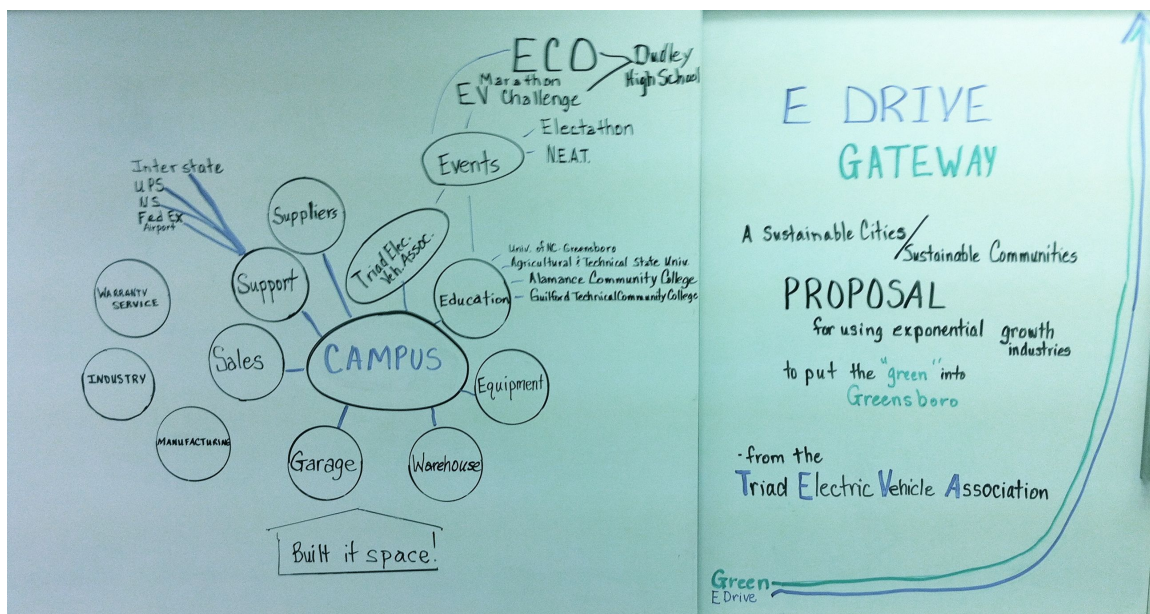 ECO
Marathon
EV Challenge
Dudley
High School
Electathon
N.E.A.T.
Events
Interstate
UPS
NS
Fed Ex
Airport
Suppliers
Triad Elec.
Veh. Assoc.
Support
Education
Univ. of NC Greensboro
Agricultural & Technical State Univ.
Alamance Community College
Guilford Technical Community College
WARRANTY
SERVICE
Sales
CAMPUS
INDUSTRY
Equipment
MANUFACTURING
Garage
Warehouse
Built it space!
E DRIVE
GATEWAY
A Sustainable Cities/
Sustainable Communities
PROPOSAL
for using exponential growth
industries
to put the "green" into
Greensboro
-from the
Triad Electric Vehicle Association
Green
E Drive